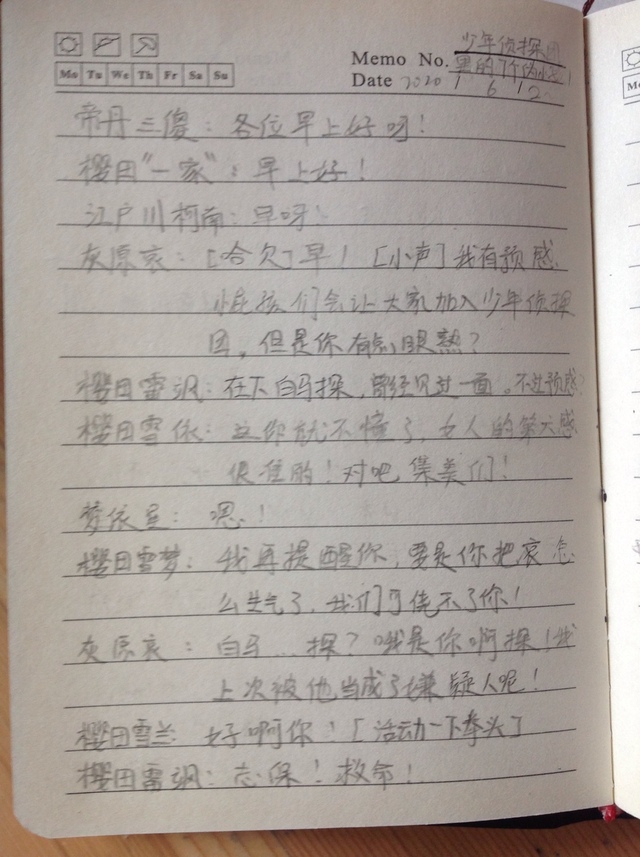 Mo Tu We Th Fr Sa Su
Memo No. 少年侦探团
里的7个伪小孩!
Date 2020 1 6 12
帝丹三傻：各位早上好呀！
樱田"一家"：早上好！
江户川柯南：早呀！
灰原哀：[哈欠]早！[小声]我有预感
小屁孩们会让大家加入少年侦探
团，但是你有点眼熟？
樱田雪飒：在下白马探，曾经见过一面。不过预感？
樱田雪依：这你就不懂了，女人的第六感
很准的！对吧集美们！
梦依星：嗯！
樱田雪梦：我再提醒你，要是你把哀惹
么生气了，我们可饶不了你！
灰原哀：白马…探？哦是你啊探！我
上次被他当成了嫌疑人呢！
樱田雪兰：好啊你！[活动一下拳头]
樱田雪飒：志保！救命！